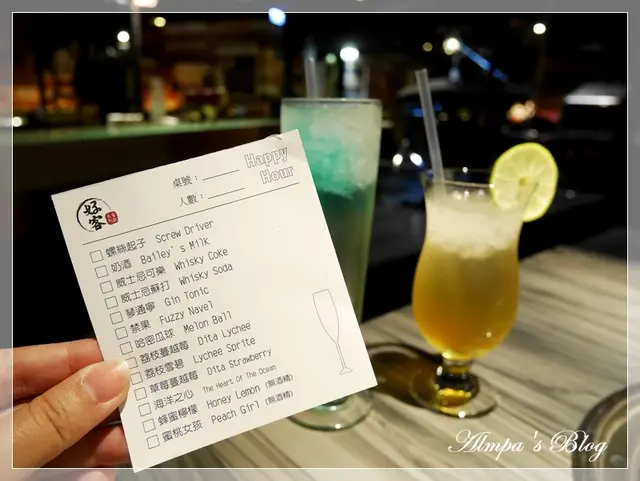 好客
桌號：
人數：
Happy
Hour
螺絲起子 Screw Driver
奶酒 Bailey's Milk
威士忌可樂 Whisky Coke
威士忌蘇打 Whisky Soda
琴通寧 Gin Tonic
禁果 Fuzzy Navel
哈密瓜球 Melon Ball
荔枝蔓越莓 Dita Lychee
荔枝雪碧 Lychee Sprite
草莓蔓越莓 Dita Strawberry
海洋之心 The Heart Of The Ocean
蜂蜜檸檬 Honey Lemon (無酒精)
蜜桃女孩 Peach Girl (無酒精)
Almpa's Blog